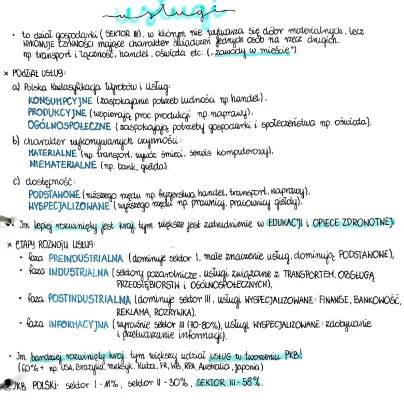 usługi
• to dział gospodarki (SEKTOR III), w którym nie wytwarza się dóbr materialnych, lecz
WYKONUJE CZYNNOŚCI mające charakter świadczeń jednych osób na rzecz drugich.
np. transport i łączność, handel, oświata etc. („zawody w mieście”)
× PODZIAŁ USŁUG:
a) Polska Klasyfikacja Wyrobów i Usług:
KONSUMPCYJNE (zaspokajanie potrzeb ludności np. handel).
PRODUKCYJNE (wspierają proc. produkcji np. naprawy).
OGÓLNOSPOŁECZNE (zaspokajają potrzeby gospodarki i społeczeństwa np. oświata).
b) charakter wykonywanych czynności:
MATERIALNE (np. transport, wywóz śmieci, serwis komputerowy).
NIEMATERIALNE (np. bank, giełda).
c) dostępność:
PODSTAWOWE (niższego rzędu np. fryzjerstwo, handel, transport, naprawy).
WYSPECJALIZOWANE (wyższego rzędu np. prawnicy, pracownicy giełdy).
• Im lepiej rozwinięty jest kraj tym większe jest zatrudnienie w EDUKACJI i OPIECE ZDROWOTNEJ
× ETAPY ROZWOJU USŁUG:
• faza PREINDUSTRIALNA (dominuje sektor I, małe znaczenie usług, dominują PODSTAWOWE),
• faza INDUSTRIALNA (sektory pozarolnicze, usługi związane z TRANSPORTEM, OBSŁUGĄ
PRZEDSIĘBIORSTW i OGÓLNOSPOŁECZNYCH),
• faza POSTINDUSTRIALNA (dominuje sektor III, usługi WYSPECJALIZOWANE: FINANSE, BANKOWOŚĆ,
REKLAMA, ROZRYWKA).
• faza INFORMACYJNA (wyraźnie sektor III (70-80%), usługi WYSPECJALIZOWANE: zdobywanie
i przetwarzanie informacji).
• Im bardziej rozwinięty kraj, tym większy udział USŁUG w tworzeniu PKB!
(60% + np. USA, Brazylia, Meksyk, Kuba, FR, WB, RPA, Australia, Japonia)
• PKB POLSKI: sektor I - 11%, sektor II - 30%, SEKTOR III - 58%.